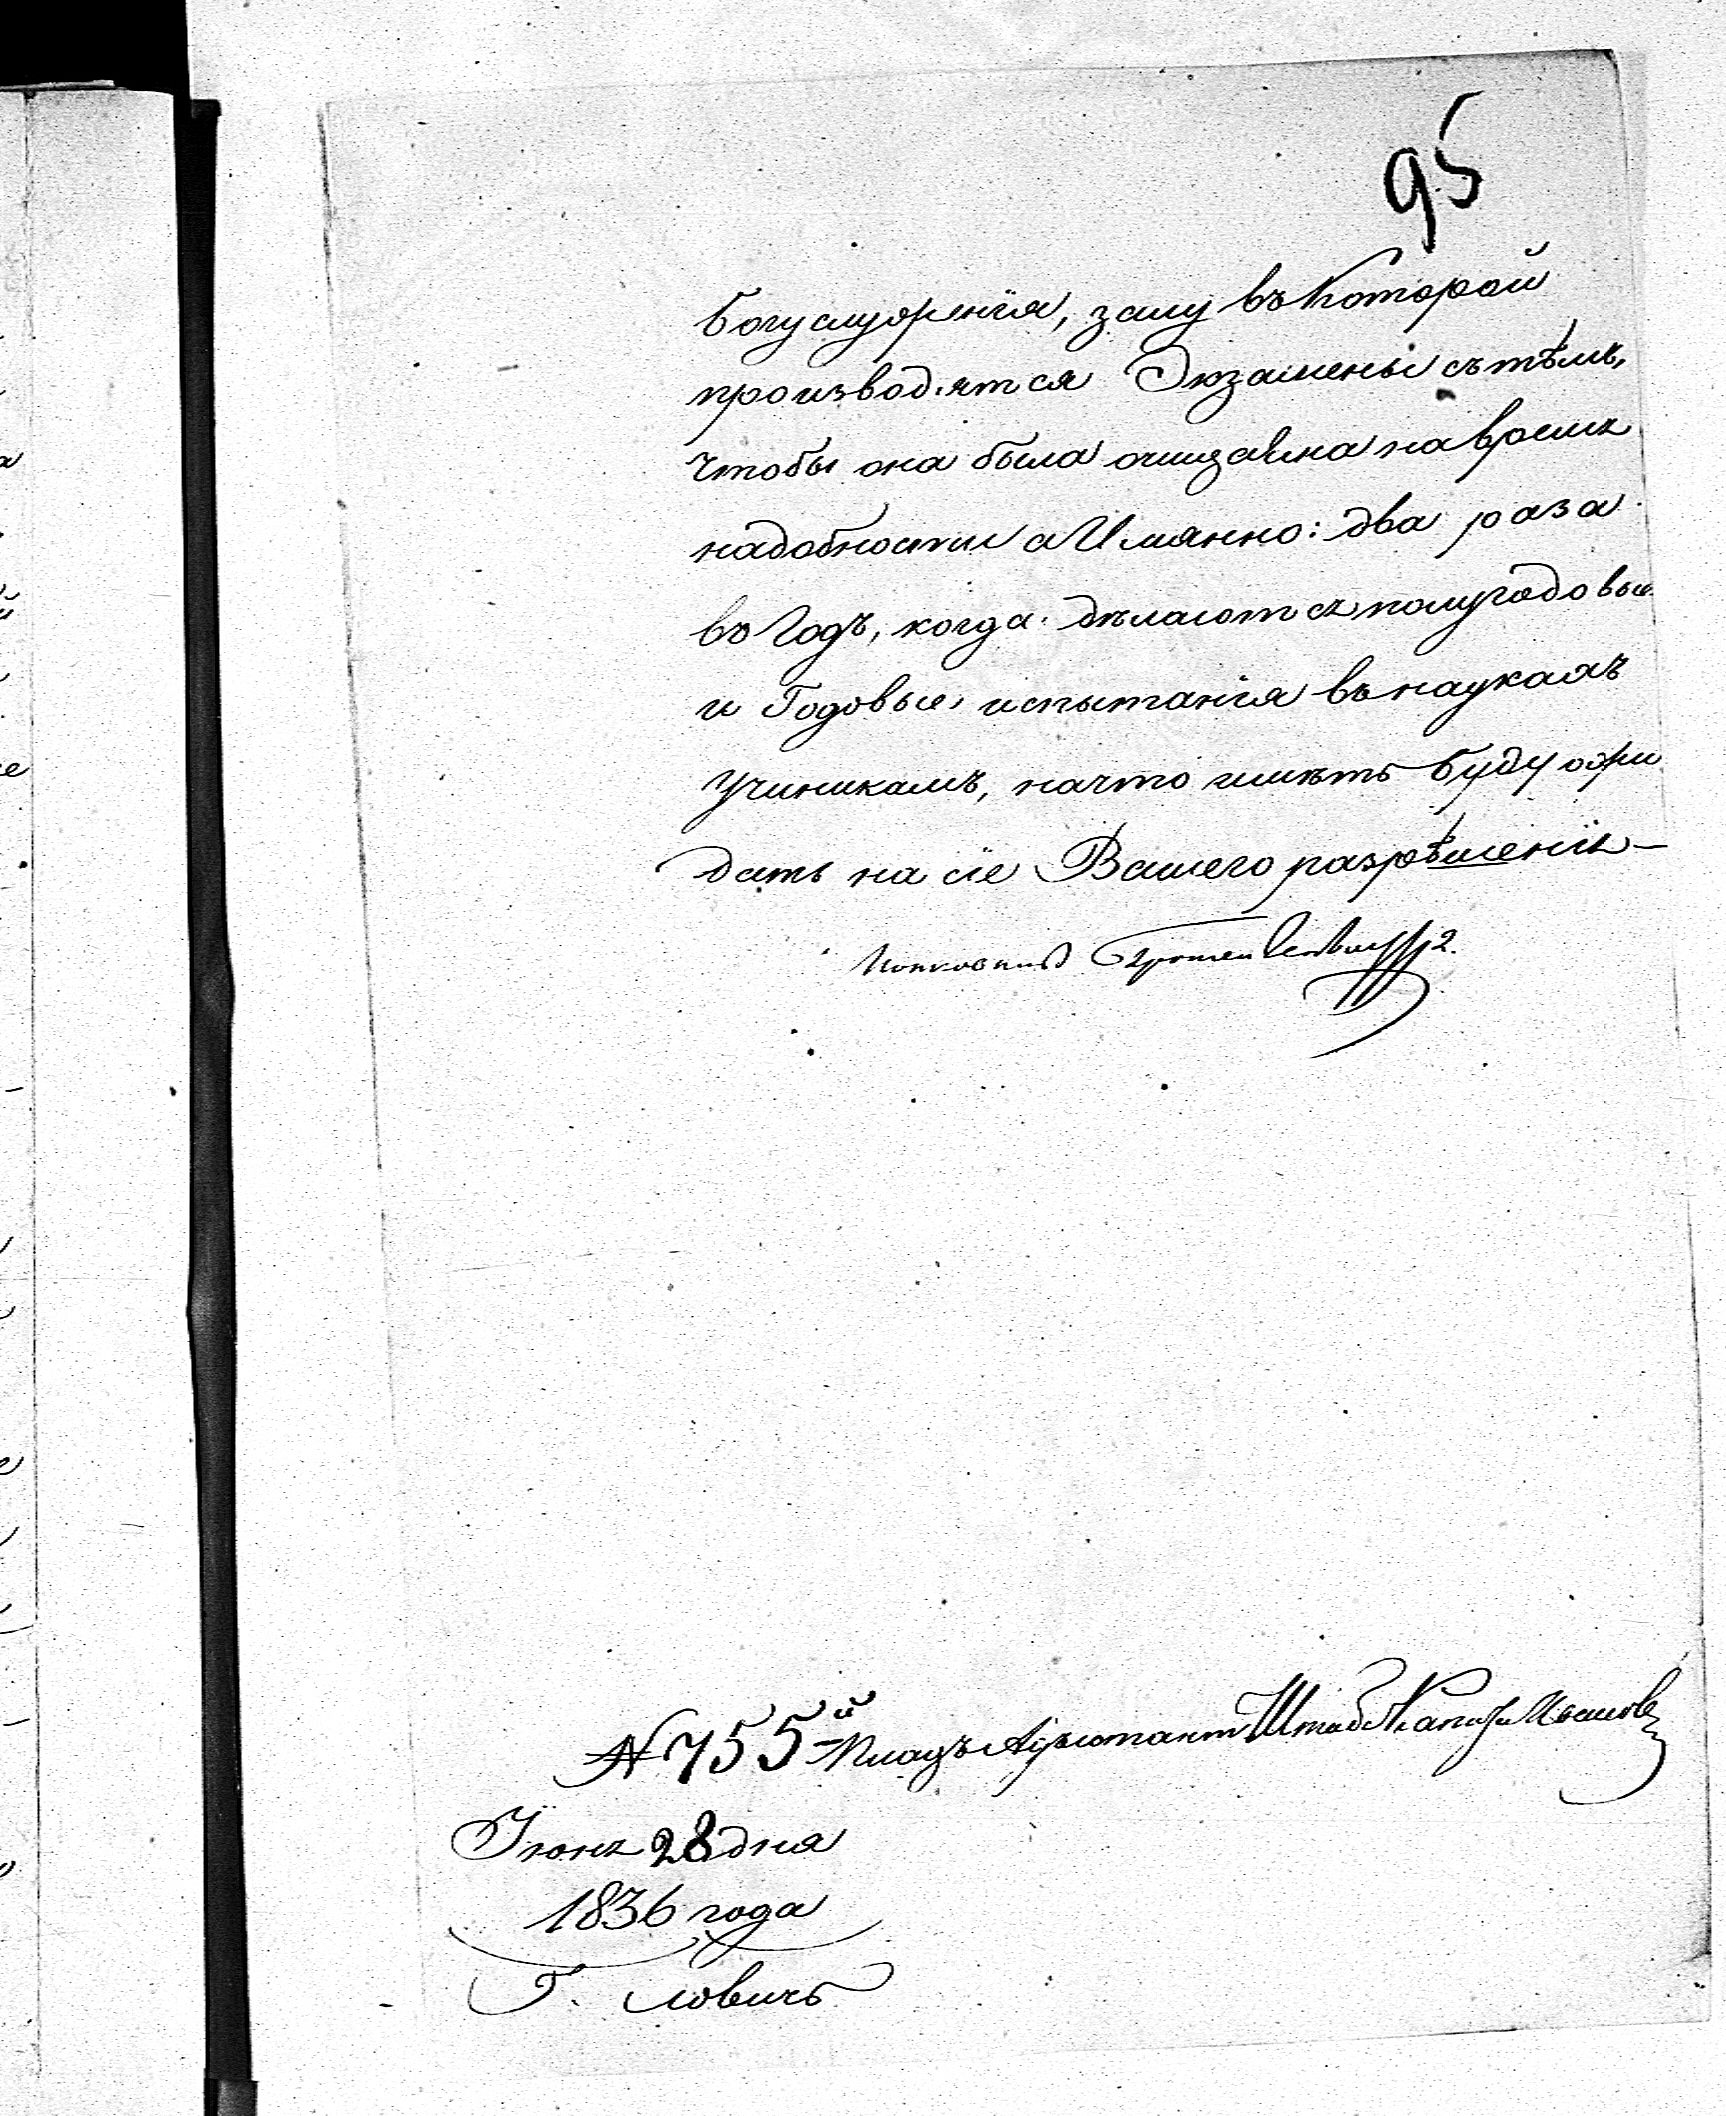 95
богуслуженія, залу въ Которой
производятся Экзамены съ тѣмъ,
чтобы она была очищаима на время
надобности а Имянно: два раза
въ Годъ, когда дѣлаются полугодовые
и Годовые испытанія въ наукахъ
Ученикамъ, на что имѣть буду ожи
дать на сіе Вашего разрѣшенія
Полковникъ
№ 755й Плацъ Адъютантъ Штабсъ Капит: Ивановъ
Іюня 28 дня
1836 года
Г. Ловичь